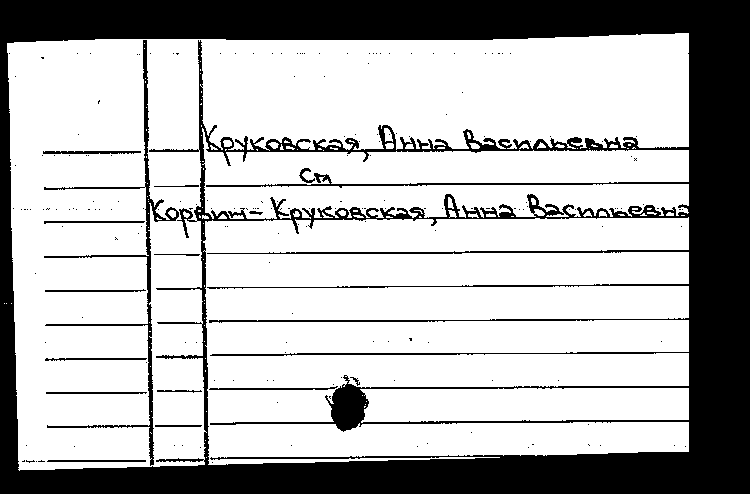 Круковская, Анна Васильевна
см.
Корвин-Круковская, Анна Васильевна